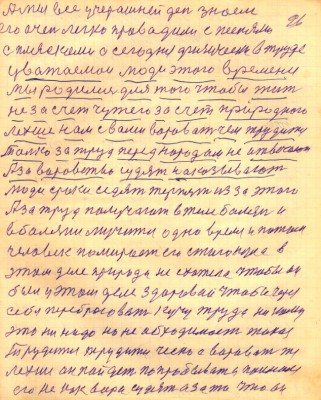 А мы все учерашней ден знаем 96
его очен легко проводили с песнями
с плясками а сегодня физически в труде
уважаемои люди этого времени
мы родилис для того чтобы жит
не за счет чужего за счет природного
лекше нам с вами вароват чем трудитис
толко за труд перед народам не отвечают
А за варовство судят наказывают
люди сроки сидят терпят из за этого
А за труд получают в теле балезн и
в балезни мучити одно время и потом
человек помирает его стаго нока в
этом деле природа не схотела чтобы он
был у этом деле здаровай чтобы через
себя перебросоват кучу труда
это ни надо но не обходимост такая
трудити трудити чесно а вароват
лекши он пойдет попробывать
его не как вара судят а за то что он